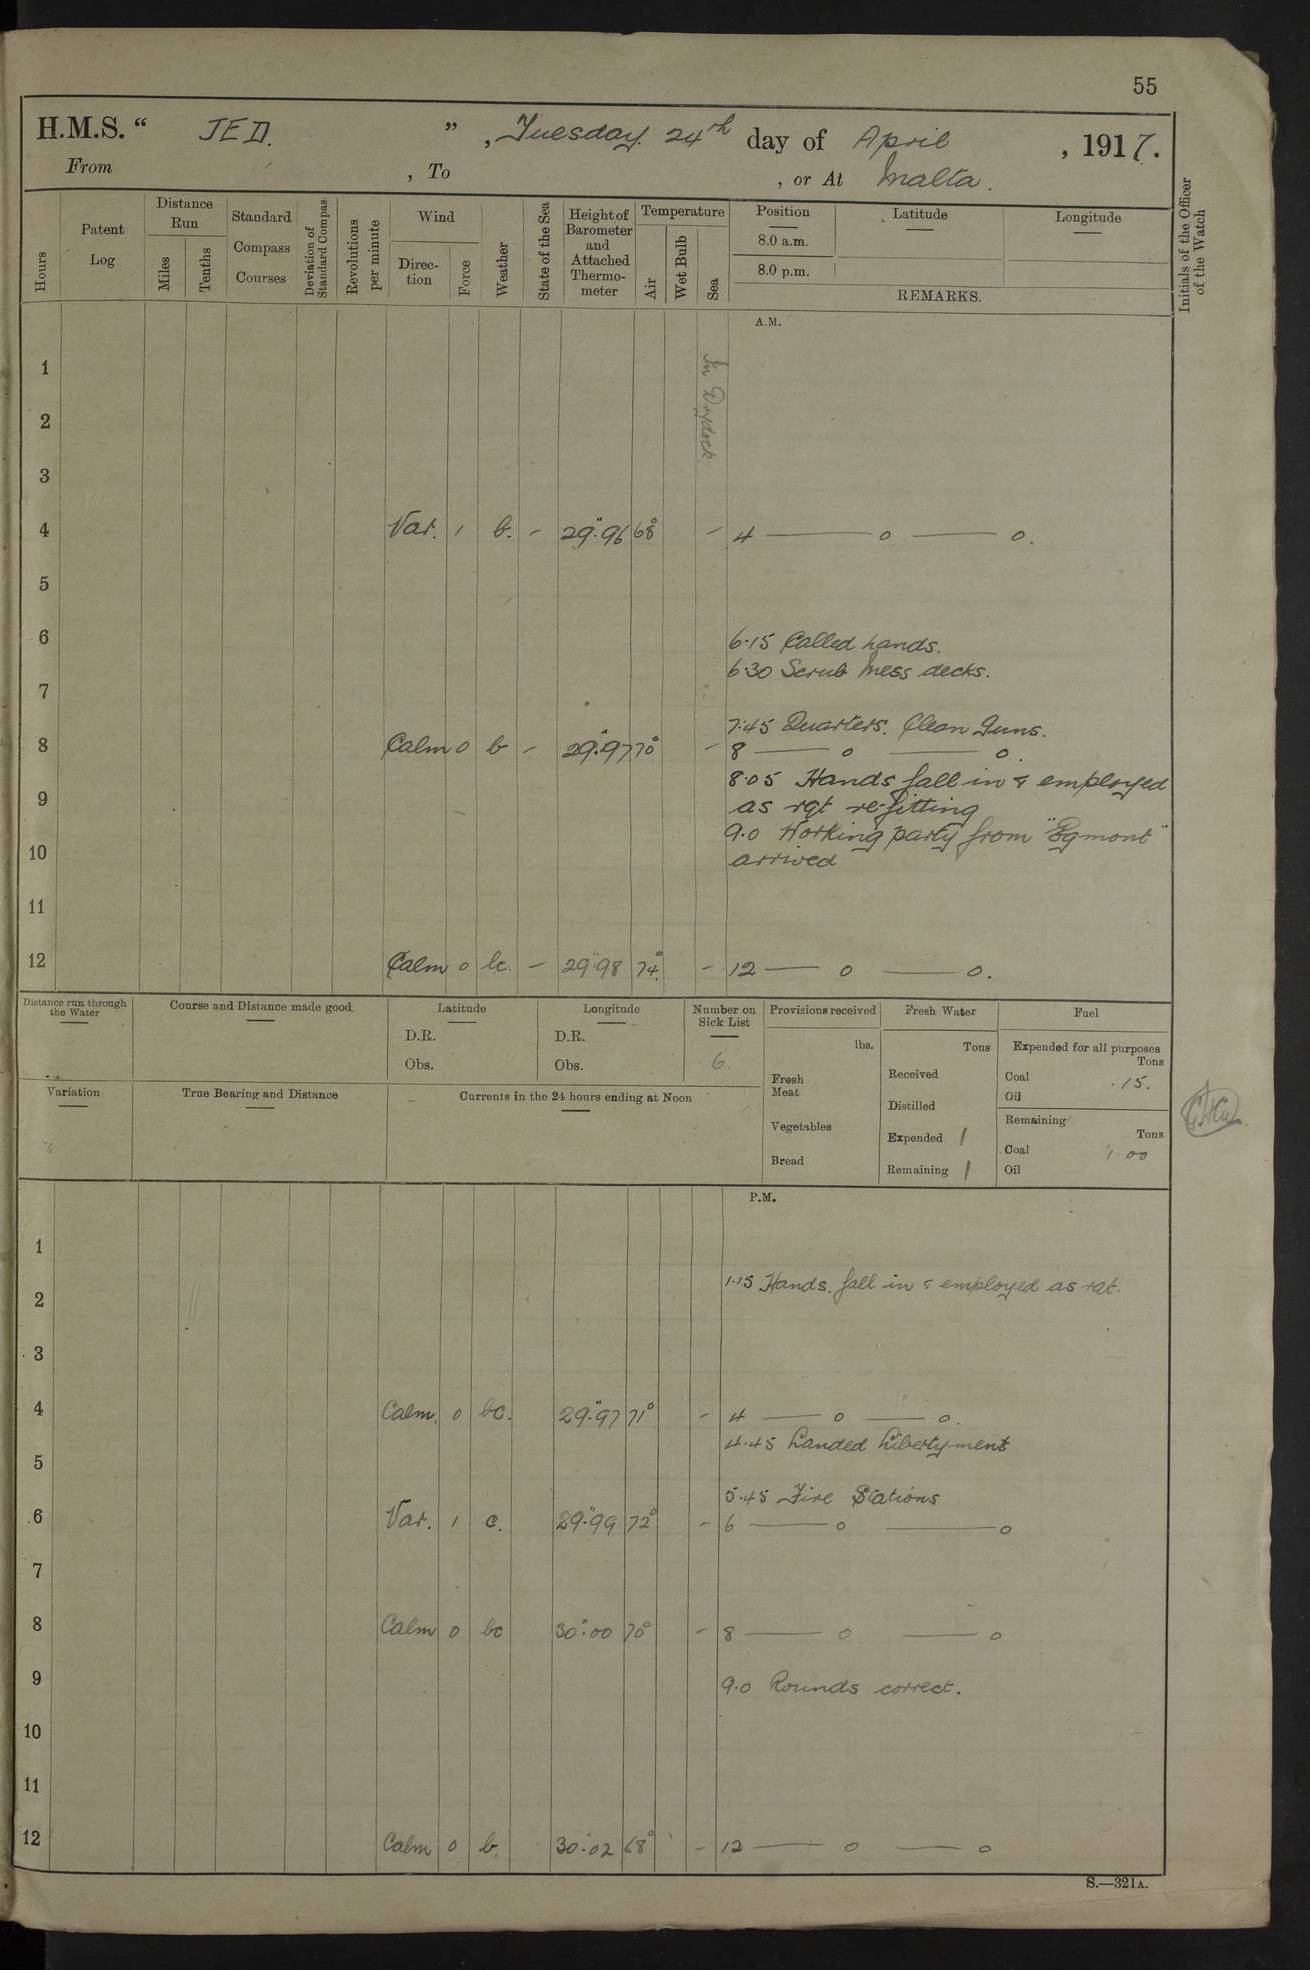 55
H.M.S. “ JED. ” , Tuesday. 24th day of April , 1917.
From , To , or At Malta.
Hours
Patent Log
Distance Run
Miles
Tenths
Standard Compass Courses
Deviation of Standard Compass
Revolutions per minute
Wind
Direction
Force
Weather
State of the Sea
Height of Barometer and Attached Thermometer
Temperature
Air
Wet Bulb
Sea
Position
8.0 a.m.
8.0 p.m.
Latitude
Longitude
REMARKS.
Initials of the Officer of the Watch
A.M.
In Drydock
1
2
3
4 Var. 1 b. - 29".96 68° - 4 — o — o.
5
6
6.15 Called hands.
6.30 Scrub Mess decks.
7
7.45 Quarters. Clean Guns.
8 Calm 0 b - 29".97 70° - 8 — o — o.
8.05 Hands fall in & employed
9
as rqt refitting
9.0 Working party from "Egmont"
10
arrived
11
12 Calm 0 bc. - 29".98 74° - 12 — o — o.
Distance run through the Water
Course and Distance made good
Latitude
D.R.
Obs.
Longitude
D.R.
Obs.
Number on Sick List
6.
Provisions received
lbs.
Fresh Meat
Vegetables
Bread
Fresh Water
Tons
Received
Distilled
Expended 1
Remaining 1
Fuel
Expended for all purposes
Tons
Coal .15.
Oil
Remaining
Tons
Coal 1.00
Oil
Variation
True Bearing and Distance
Currents in the 24 hours ending at Noon
P.M.
1
1.15 Hands. fall in & employed as rqt.
2
3
4 Calm. 0 bc. 29".97 71° - 4 — o — o.
4.45 Landed Libertyment
5
5.45 Fire Stations
6 Var. 1 c. 29".99 72° - 6 — o — o
7
8 Calm 0 bc 30".00 70° - 8 — o — o
9
9.0 Rounds correct.
10
11
12 Calm 0 b. 30.02 68° - 12 — o — o
S.—321A.